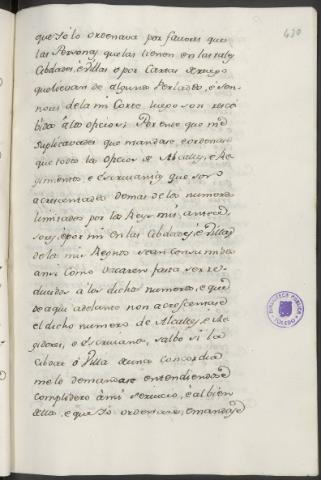 430
que Yo lo ordenava por favores que
las Personas que las tienen en las tales
Cibdades, è Villas e por Cartas de ruego
que llevan de algunos Perlados, è Sen-
nores de la mi Corte luego son resce-
bidos à los oficios; Por ende que me
suplicavades que mandase è ordenase
que todos los Oficios de Alcalles, è Re-
gimientos e Escrivanias que son
acrescentados demas de los numeros
limitados por los Reyes mis antece-
sores, è por mi en las Cibdades, è Villas
de los mis Regnos sean consumidos
ansi como vacaren fasta ser re-
ducidos à los dichos numeros, e que
de aqui adelante non acrescentase
el dicho numero de Alcalles, e Re-
gidores, o Escrivanos, salbo si la
Cibdat ò Villa de una concordia
me lo demandase entendiendose
complidero à mi servicio, e al bien
della, e que Yo ordenase, e mandase
BIBLIOTECA PUBLICA
TOLEDO